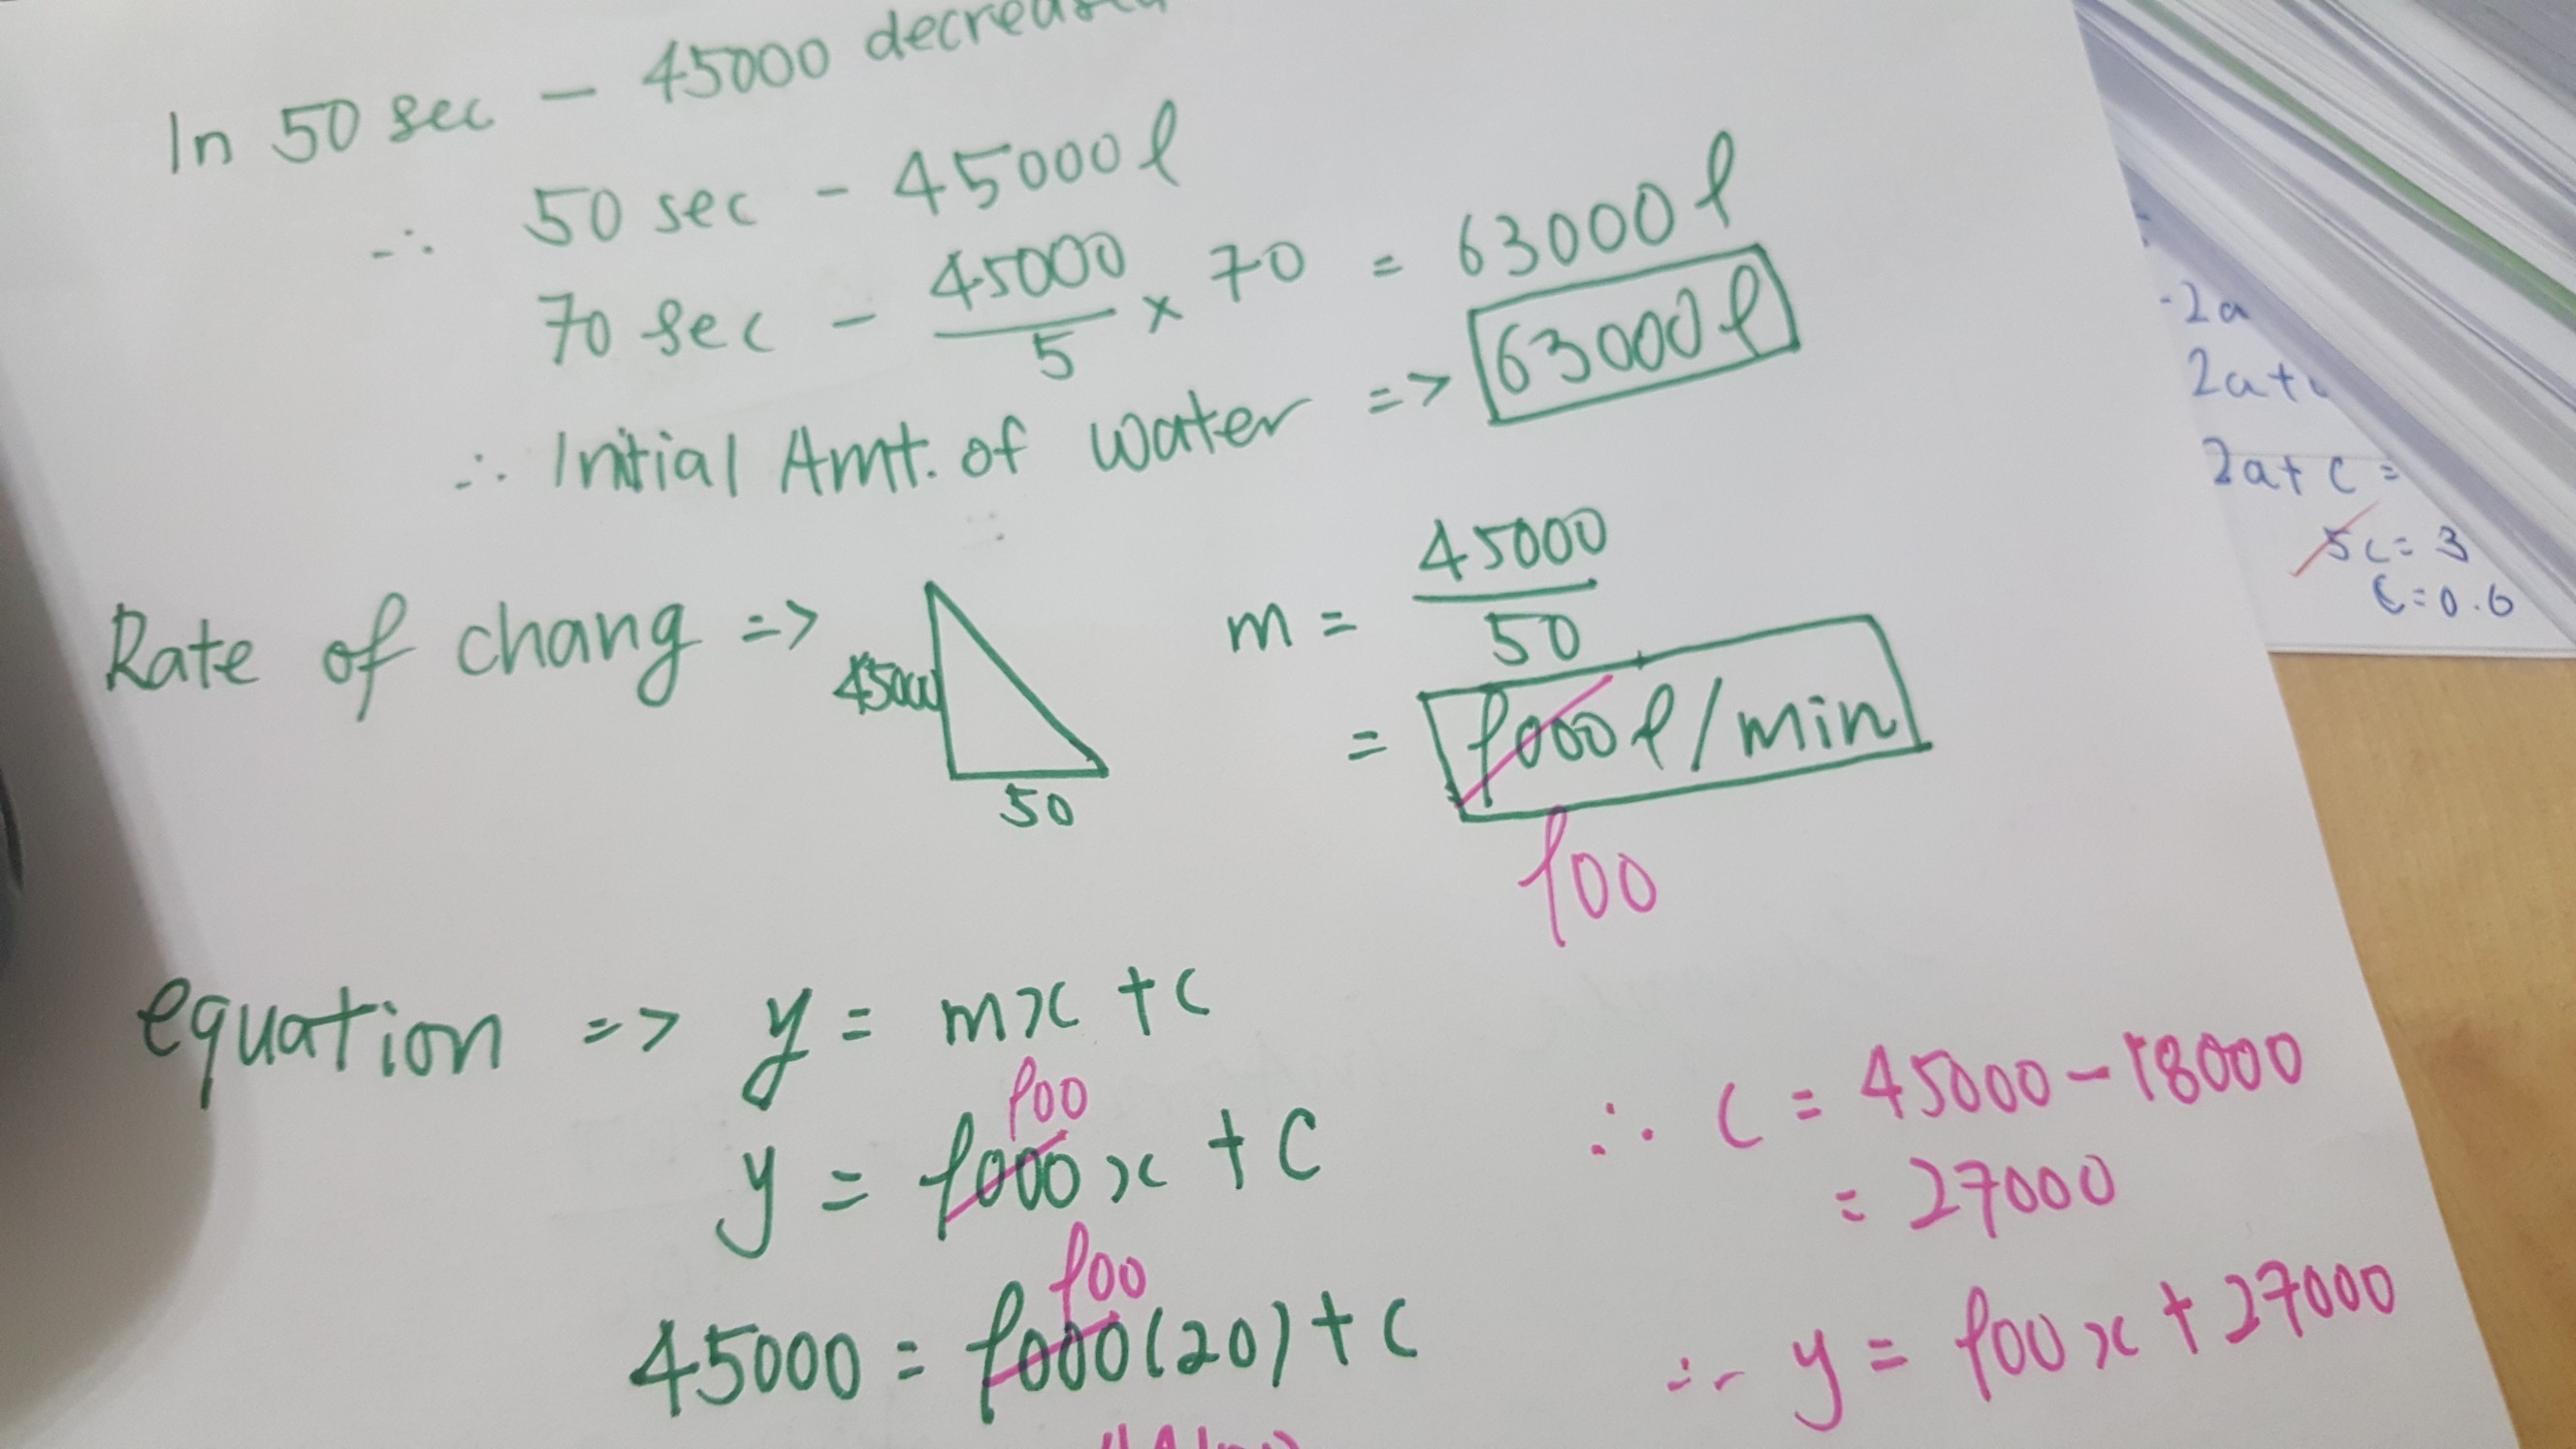 In 50 sec – 45000 decreased
∴ 50 sec – 45000 l
70 sec – 45000/5 × 70 = 63000 l
∴ Initial Amt. of water => 63000 l
Rate of chang => 45000 50 m = 45000/50
= 9000 l/min
900
equation => y = mx + c
900
y = 9000x + c
900
45000 = 9000(20) + c
∴ c = 45000 – 18000
= 27000
∴ y = 900x + 27000
-2a
2a+
2a + c =
5c = 3
c = 0.6